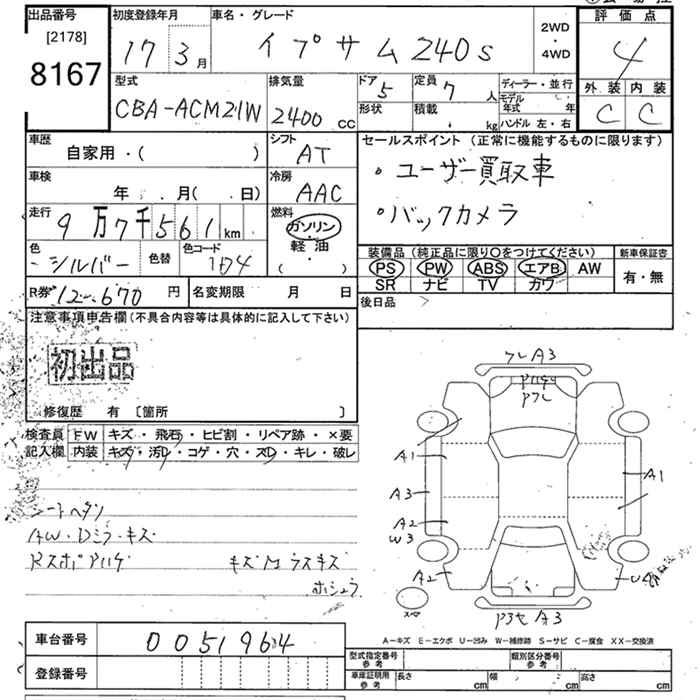 出品番号
[2178]
8167
初度登録年月
17 3月
車名・グレード
イプサム 240s
2WD
・
4WD
評価点
4
外装 内装
C C
型式
CBA-ACM21W
排気量
2400 cc
ドア 5
形状
定員 7 人
積載 kg
ディーラー・並行
モデル年式 年
ハンドル 左・右
車歴
自家用・( )
シフト
AT
車検
年 . 月( . 日)
冷房
AAC
走行
9万7千561km
燃料
ガソリン
軽・油
( )
色
シルバー
色替
色コード
1D4
セールスポイント (正常に機能するものに限ります)
・ユーザー買取車
・バックカメラ
装備品 (純正品に限り○をつけてください)
PS PW ABS エアB AW
SR ナビ TV カワ
新車保証書
有・無
R券 12-670 円
名変期限 月 日
後日品
注意事項申告欄 (不具合内容等は具体的に記入して下さい)
初出品
修復歴 有 〔箇所 〕
検査員記入欄
FW キズ・飛石・ヒビ割・リペア跡・×要
内装 キズ・汚レ・コゲ・穴・スレ・キレ・破レ
シートヘタリ
AW・Dミラ・キズ
RスポPハゲ キズMラスキズ
ホシュラ
フレA3
Pハゲ
P7L
A1
A3
A2
W3
A2
A1
U
P3セA3
スペア
A-キズ E-エクボ U-凹み W-補修跡 S-サビ C-腐食 XX-交換済
車台番号
0051964
登録番号
型式指定番号
参考
類別区分番号
参考
車庫証明用
参考
長さ cm
幅 cm
高さ cm